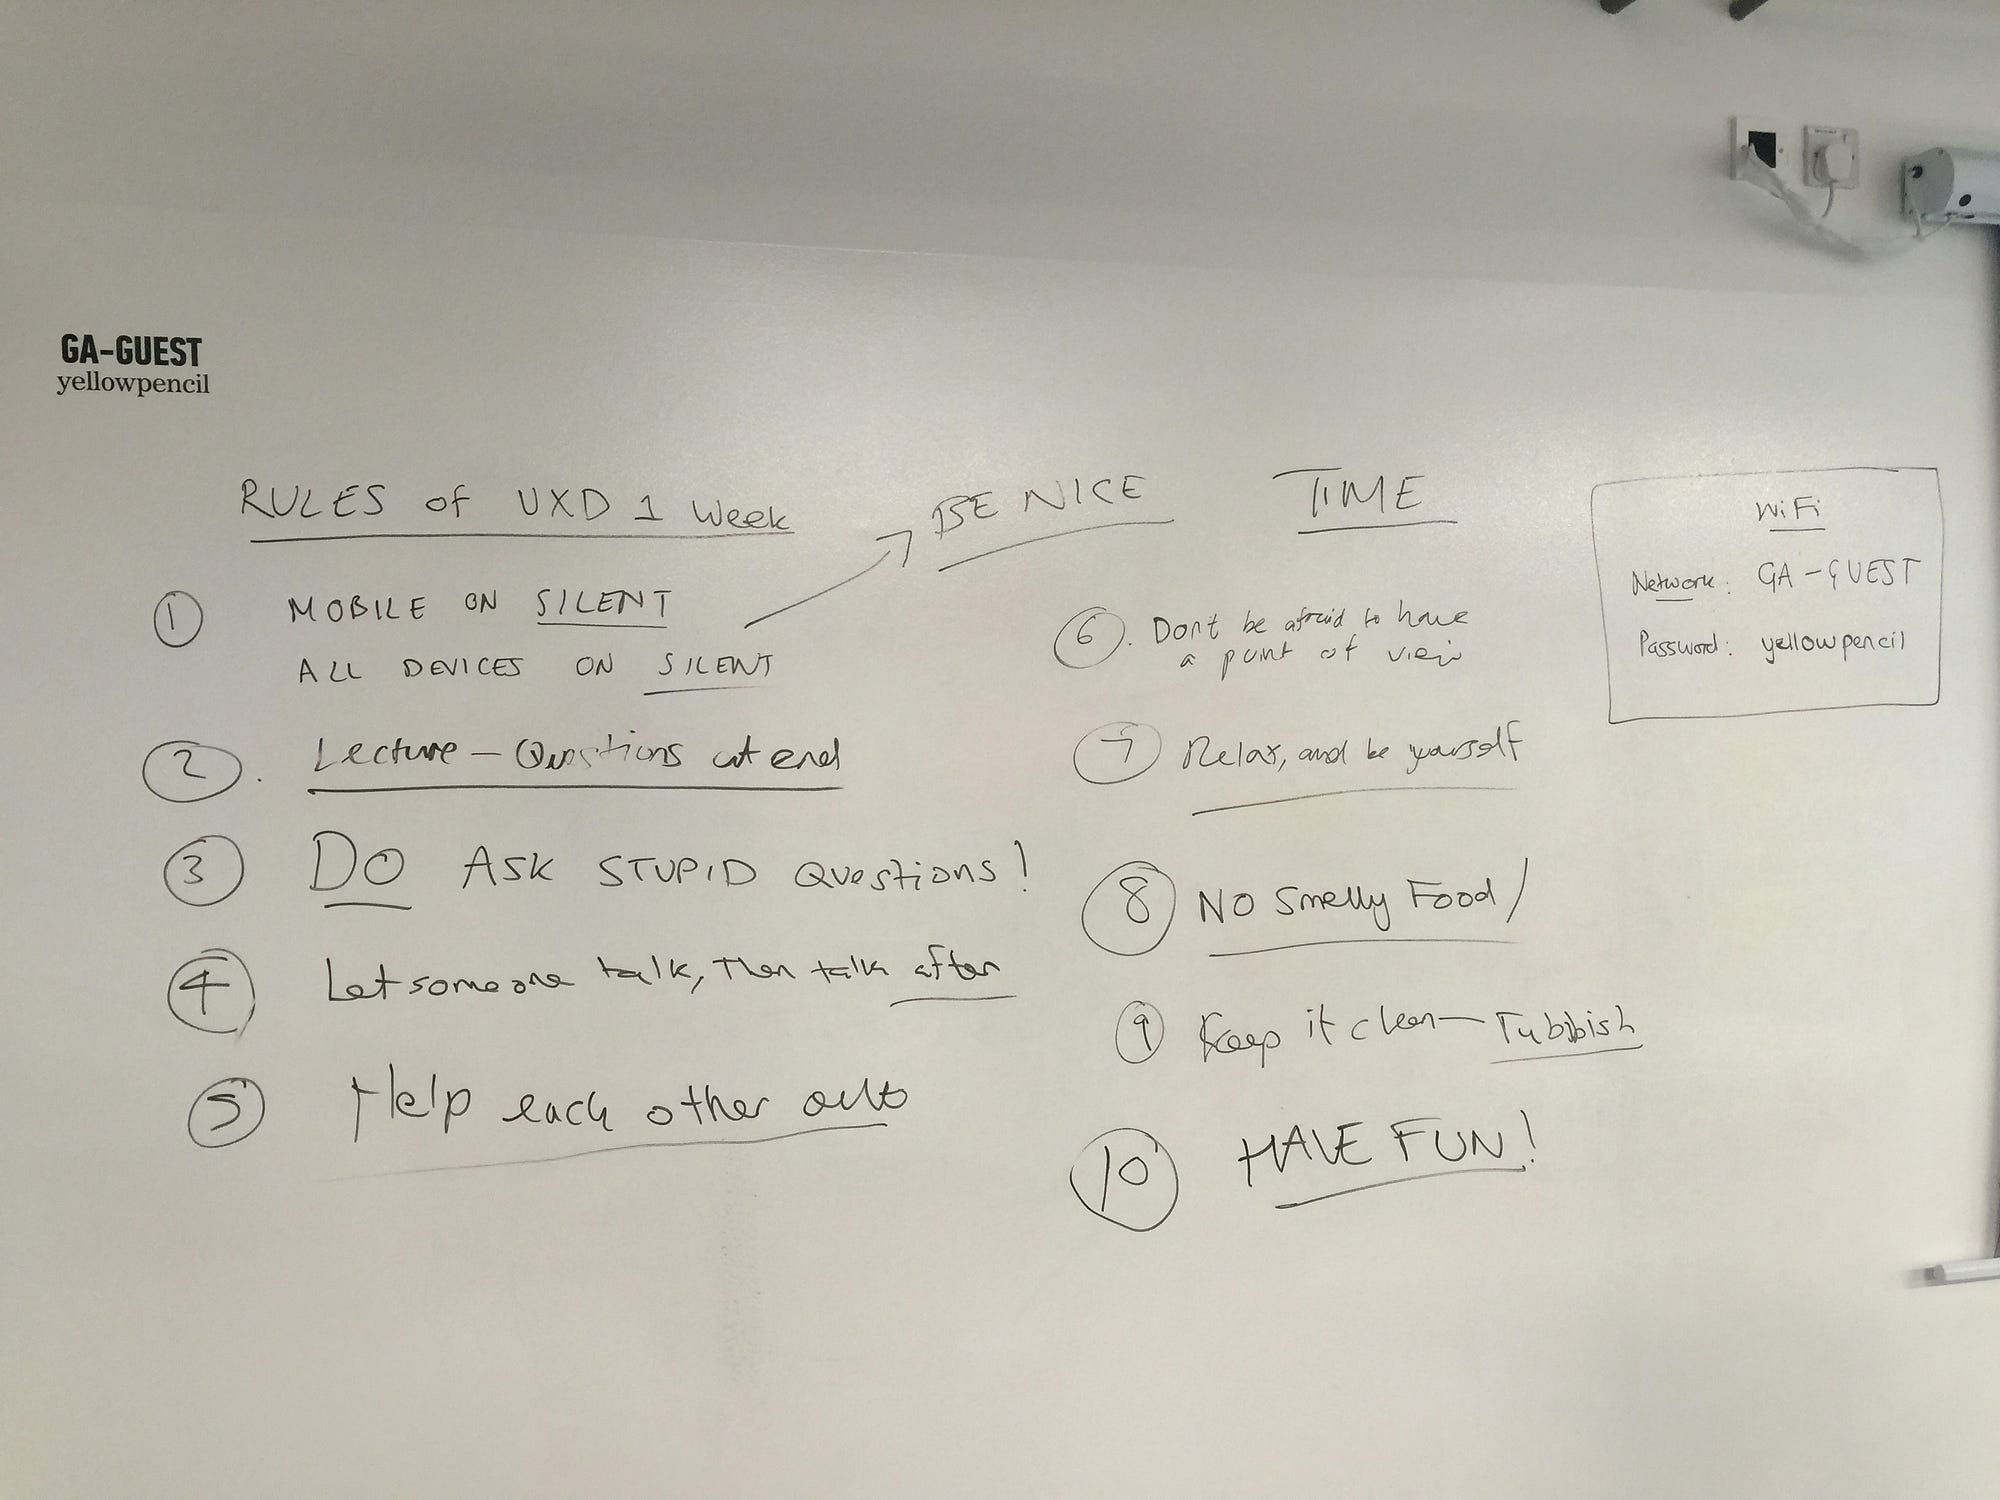 GA-GUEST
yellowpencil
RULES of UXD 1 Week
BE NICE
TIME
1 MOBILE ON SILENT
ALL DEVICES ON SILENT
2. Lecture - Questions at end
3 DO ASK STUPID QUESTIONS!
4 Let someone talk, Then talk after
5 Help each other out
6. Dont be afraid to have
a point of view
7 Relax, and be yourself
8 NO Smelly Food /
9 Keep it clean - rubbish
10 HAVE FUN!
WiFi
Network: GA-GUEST
Password: yellowpencil